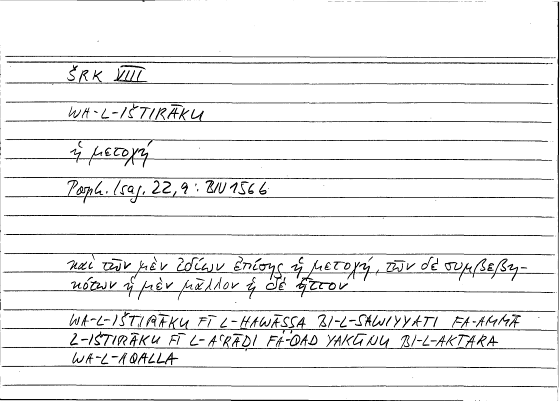 ŠRK VIII
WA-L-IŠTIRĀKU
ἡ μετοχή
Porph. Isag. 22,9 : BIV 156 6
καὶ τῶν μὲν ἰδίων ἐπίσης ἡ μετοχή, τῶν δὲ συμβεβη-
κότων ἡ μὲν μᾶλλον ἡ δὲ ἧττον
WA-L-IŠTIRĀKU FĪ L-ḪAWĀṢṢA BI-L-SAWIYYATI FA-AMMĀ
L-IŠTIRĀKU FĪ L-AʿRĀḌI FA-QAD YAKŪNU BI-L-AKṮARA
WA-L-AQALLA